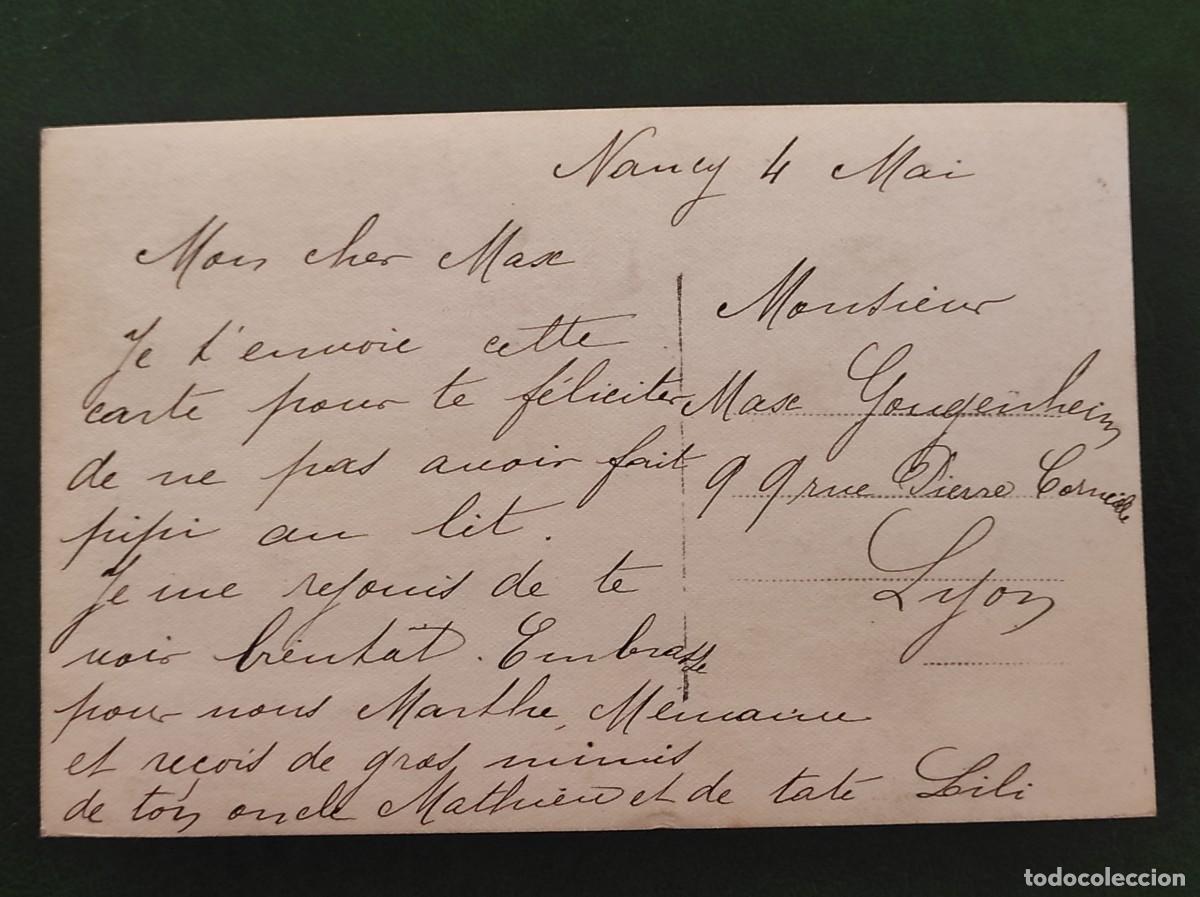 Nancy 4 Mai
Mon cher Max
Je t'envoie cette
carte pour te féliciter
de ne pas avoir fait
pipi au lit.
Je me rejouis de te
voir bientât. Embrasse
pour nous Marthe, Mémaine
et reçois de gros mimis
de ton oncle Mathieu et de tate Lili
Monsieur
Max Gougenheim
99 rue Pierre Corneille
Lyon
todocoleccion